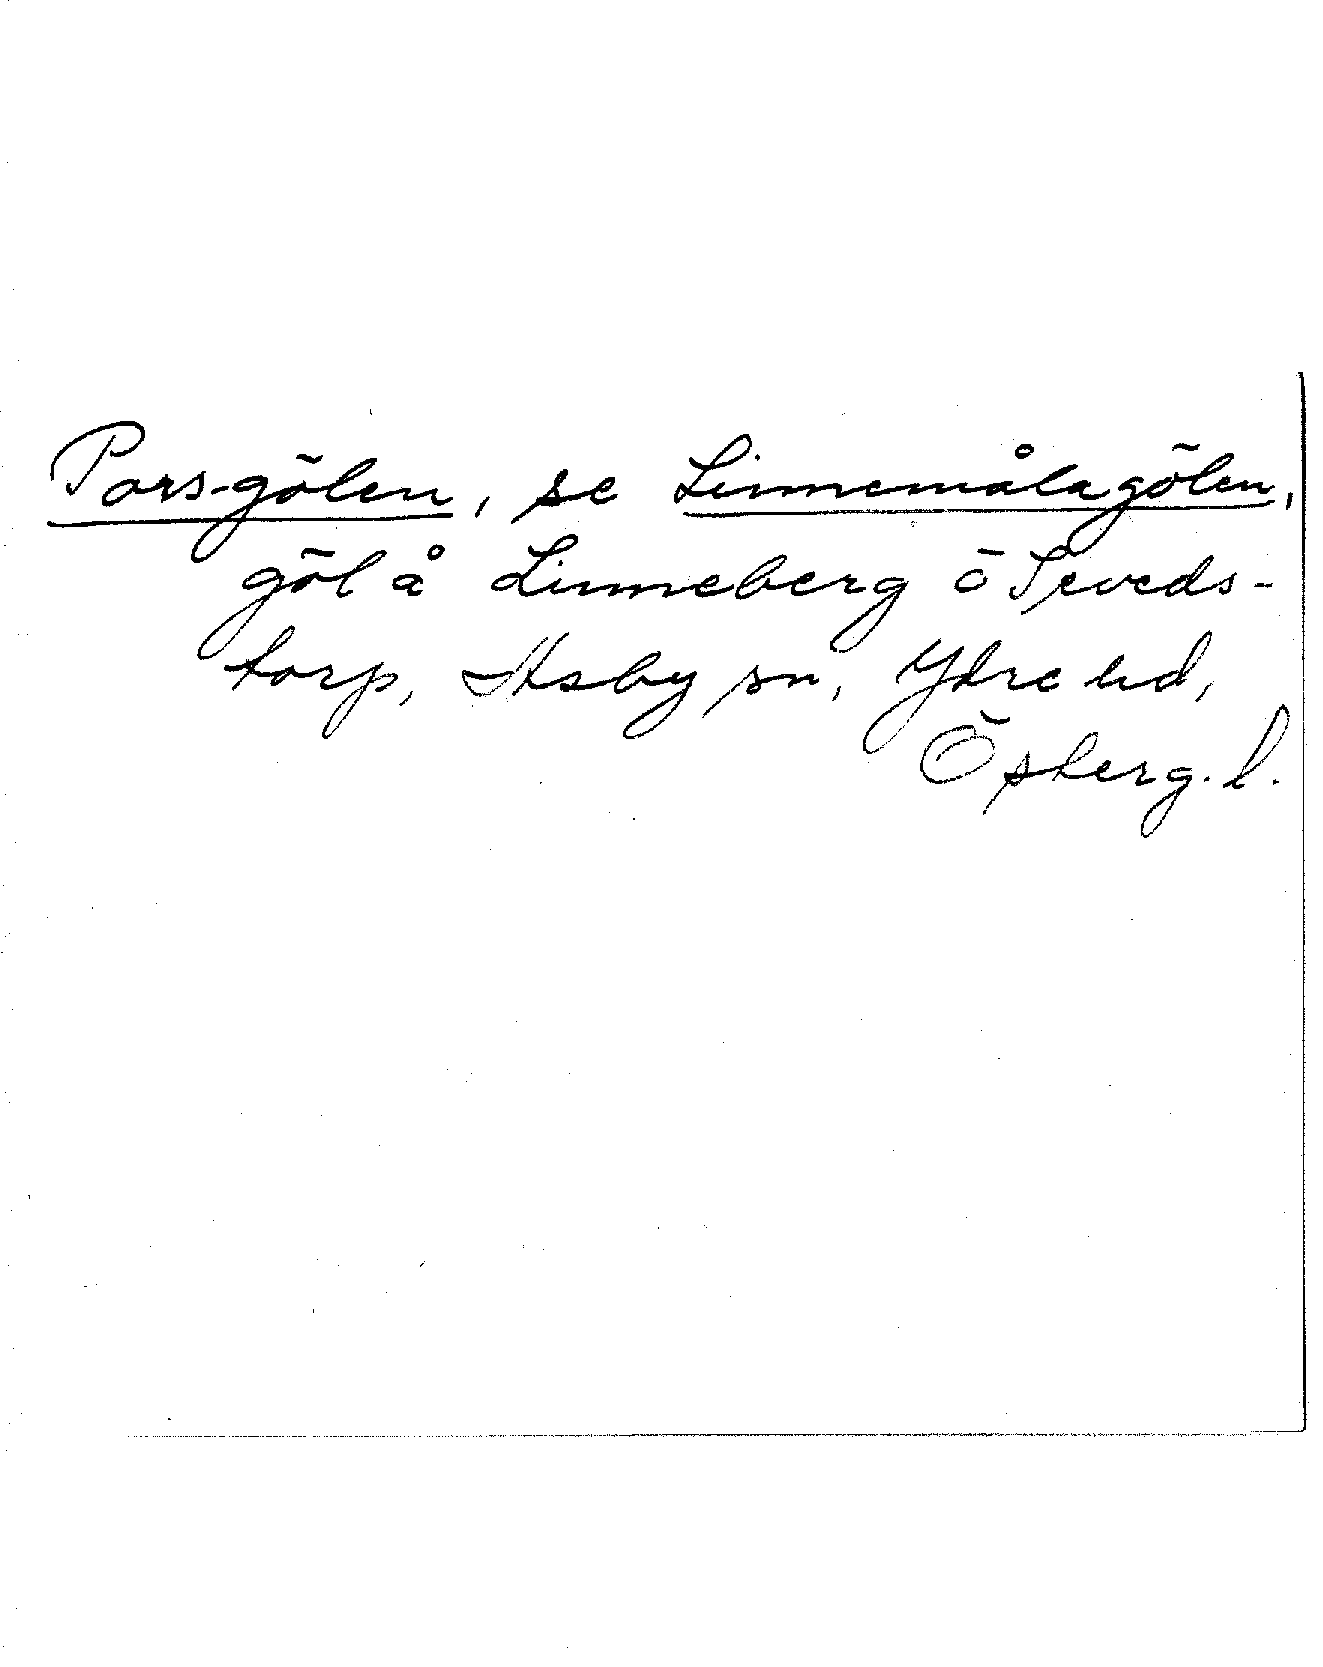 Pors-gölen, se Linnemålagölen,
göl å Linneberg ö Seveds-
torp, Asby sn, Ydre hd,
Österg. l.